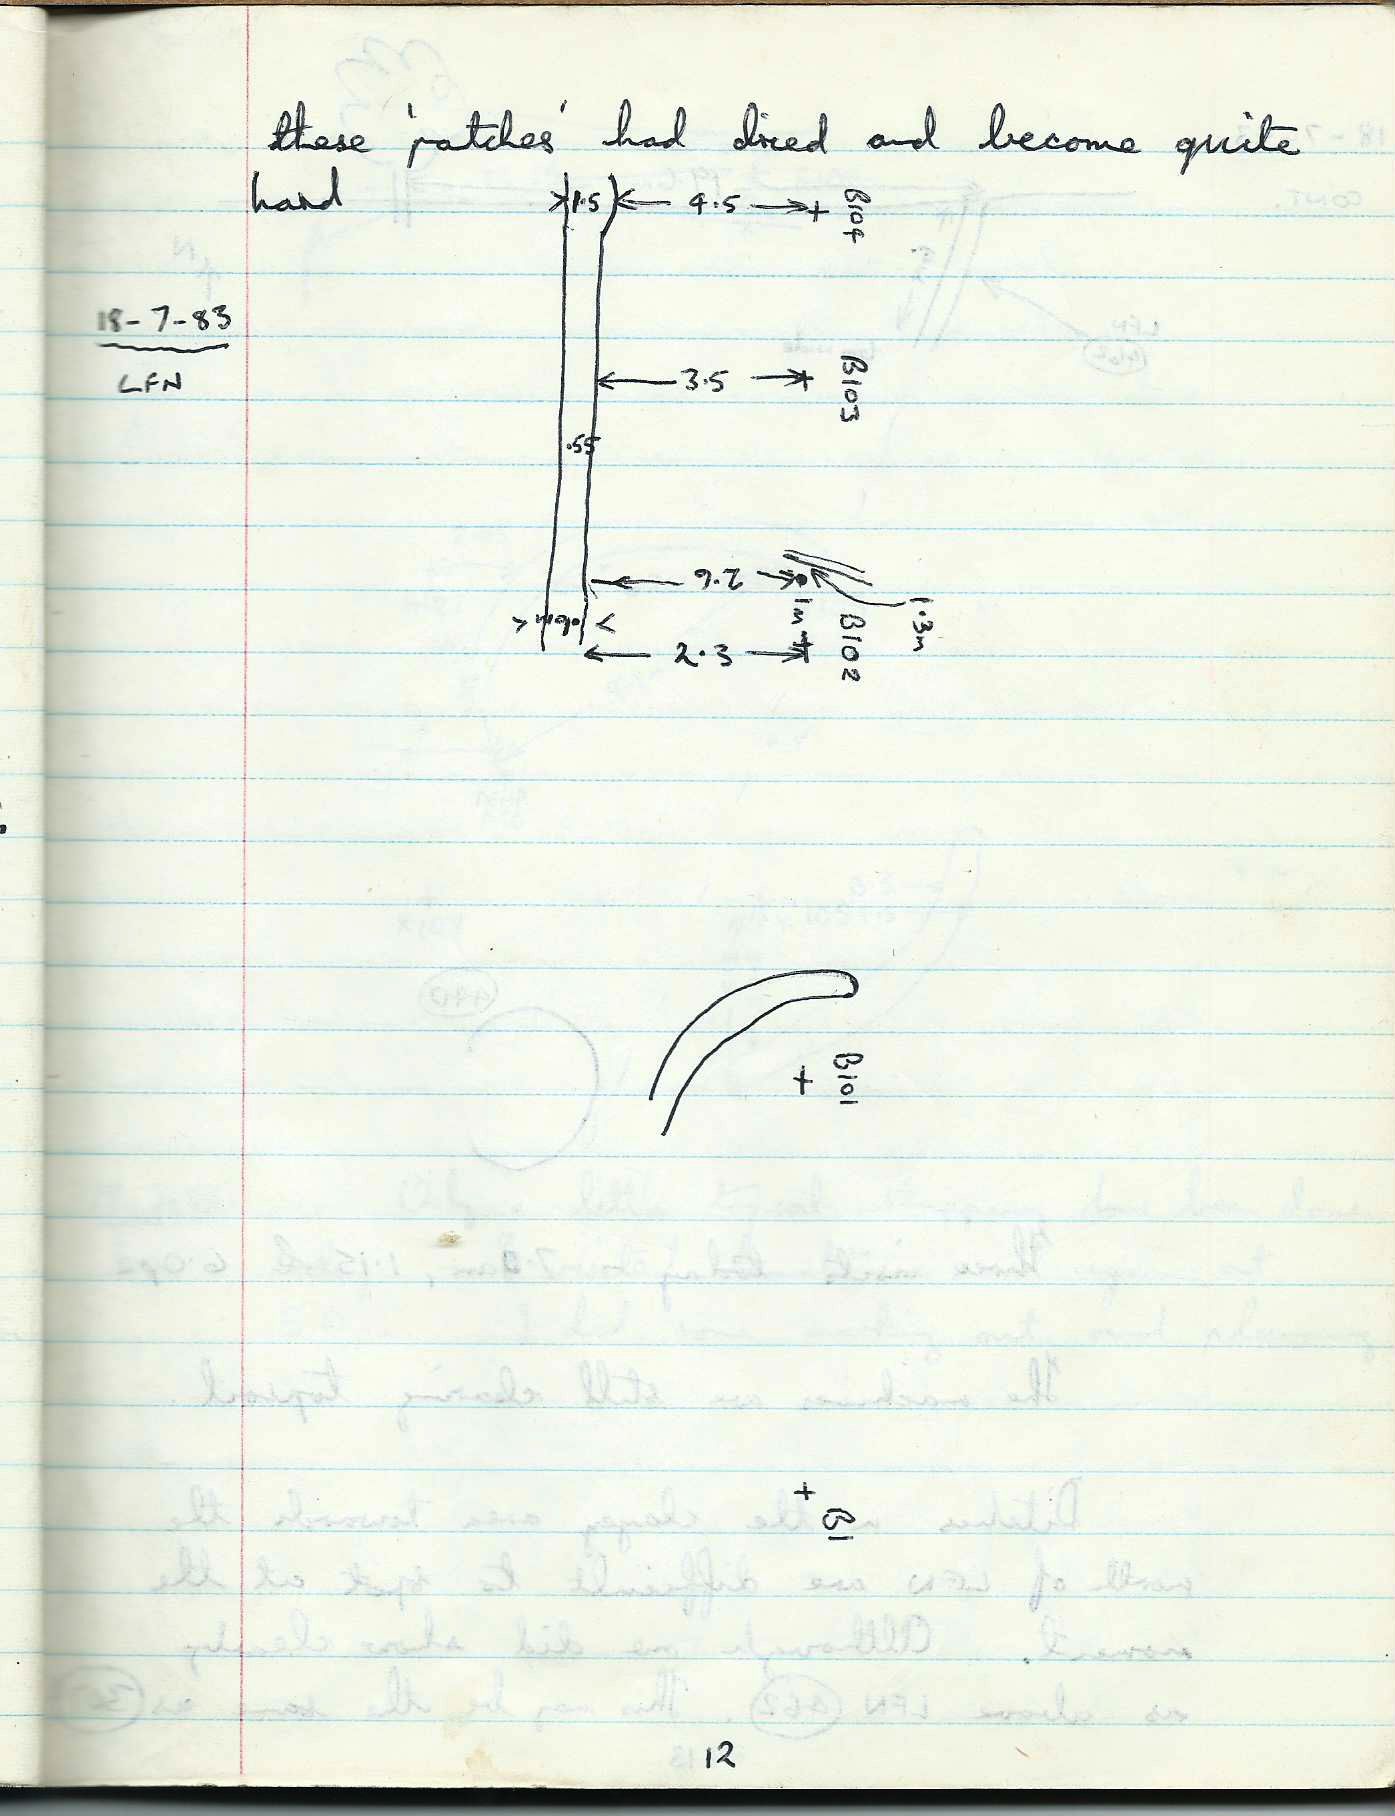 these 'patches' had dried and become quite
hard
1.5 4.5 B104
18-7-83
LFN
3.5 B103
.55
2.6
1.3m
1m B102
2.3
B101
B1
12